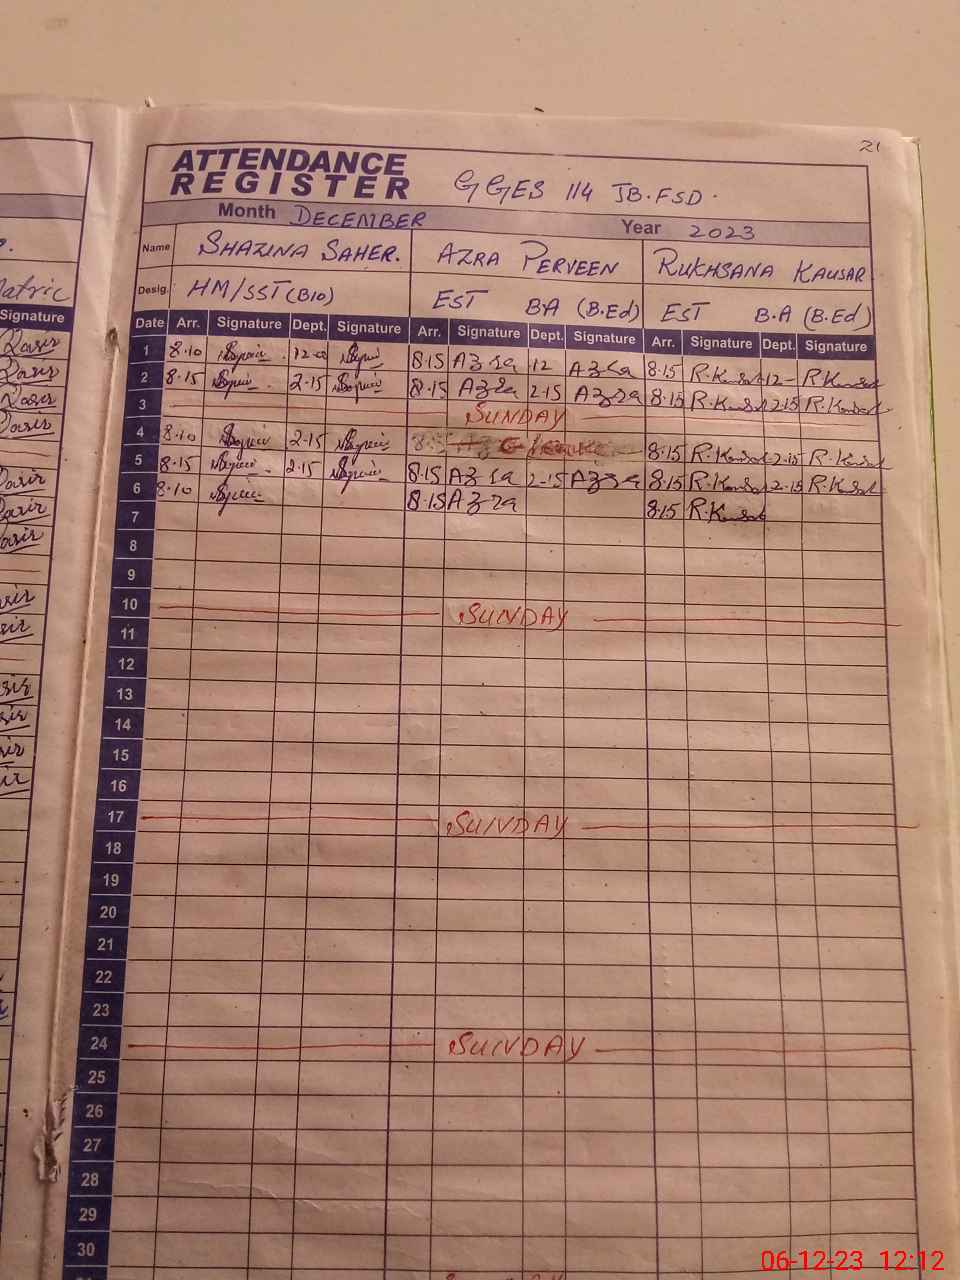 21
ATTENDANCE
REGISTER GGES 114 JB.FSD.
Month DECEMBER Year 2023
Name SHAZINA SAHER. AZRA PERVEEN RUKHSANA KAUSAR
Desig. HM/SST(BIO) EST B.A (B.Ed) EST B.A (B.Ed)
Date Arr. Signature Dept. Signature Arr. Signature Dept. Signature Arr. Signature Dept. Signature
1 8.10 8.15 Azra 12 Azra 8.15 R.Kausar 12- R.Kausar
2 8.15 2.15 8.15 Azra 2.15 Azra 8.15 R.Kausar 2.15 R.Kausar
3 SUNDAY
4 8.10 2.15 8.15 R.Kausar 2.15 R.Kausar
5 8.15 2.15 8.15 Azra 2.15 Azra 8.15 R.Kausar 2.15 R.Kausar
6 8.10 8.15 Azra 8.15 R.Kausar
7
8
9
10 SUNDAY
11
12
13
14
15
16
17 SUNDAY
18
19
20
21
22
23
24 SUNDAY
25
26
27
28
29
30
Matric
Signature
Qasir
Qasir
Qasir
Qasir
06-12-23 12:12